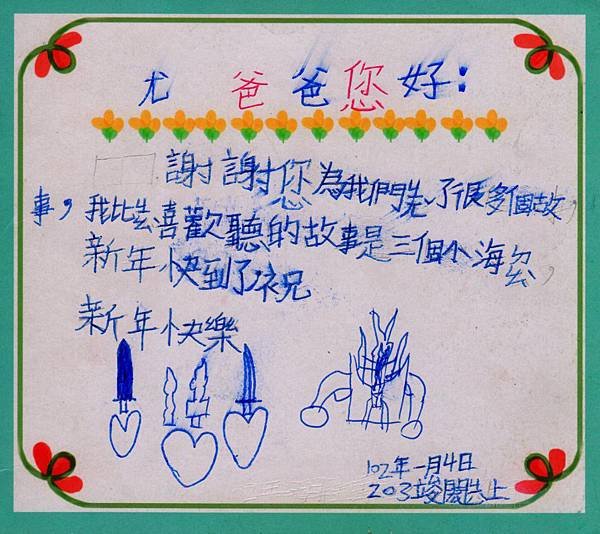 尤爸爸您好：
謝謝您為我們說了很多個故
事，我比較喜歡聽的故事是三個小海盜，
新年快到了祝
新年快樂
102年一月4日
203 上